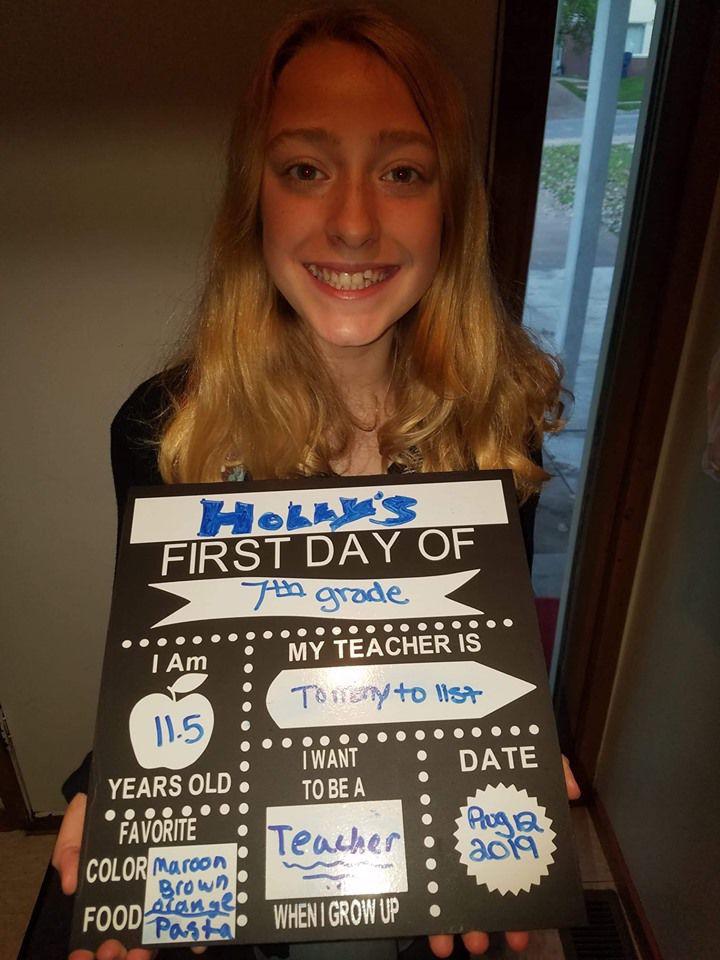 HOLLY'S
FIRST DAY OF
7th grade
I Am
11.5
YEARS OLD
MY TEACHER IS
Too many to list
FAVORITE
COLOR Maroon
Brown
orange
FOOD Pasta
I WANT
TO BE A
Teacher
WHEN I GROW UP
DATE
Aug 12
2019